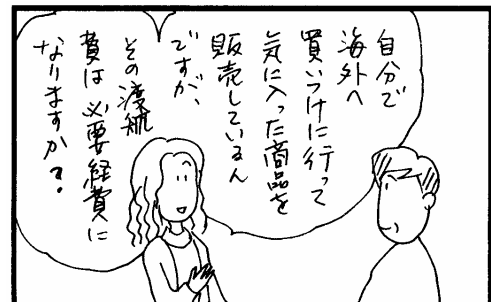 自分で
海外へ
買いつけに行って
気に入った商品を
販売しているん
ですが、
その渡航
費は必要経費に
なりますか?